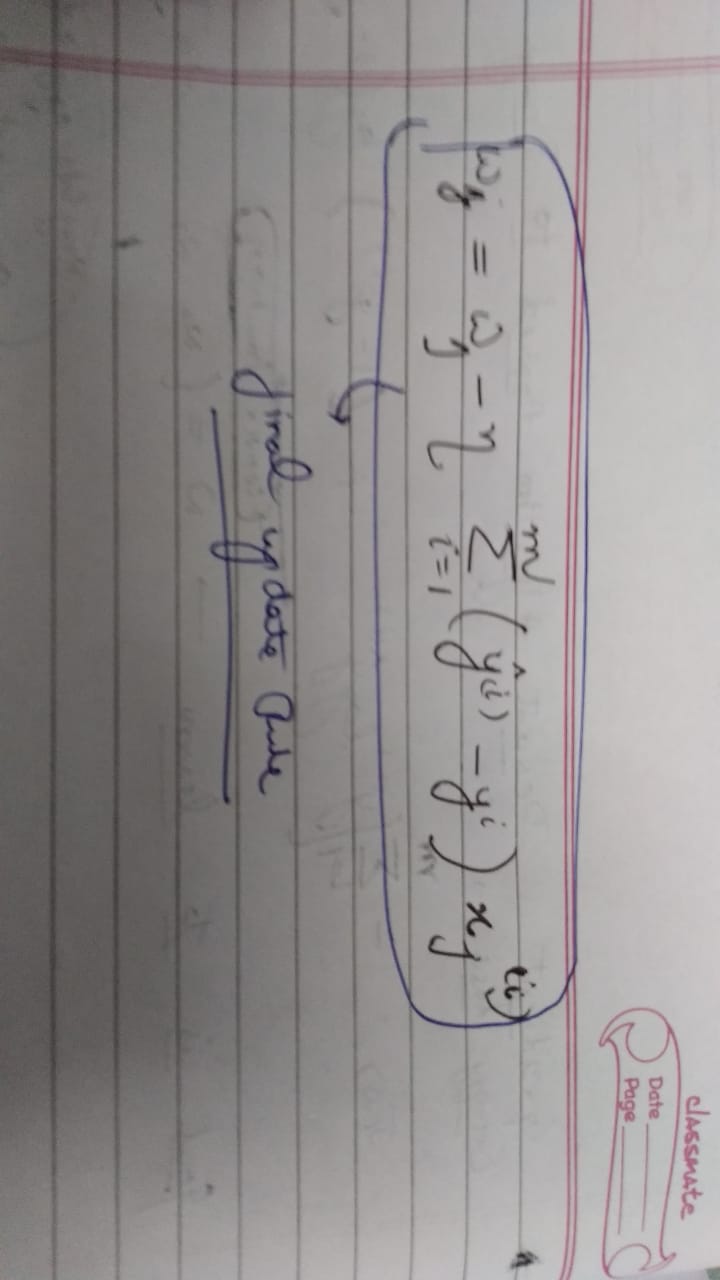 classmate
Date
Page
w_j = w_j - η Σ_{i=1}^{m} (ŷ^{(i)} - y^i) x_j^{(i)}
final update Rule